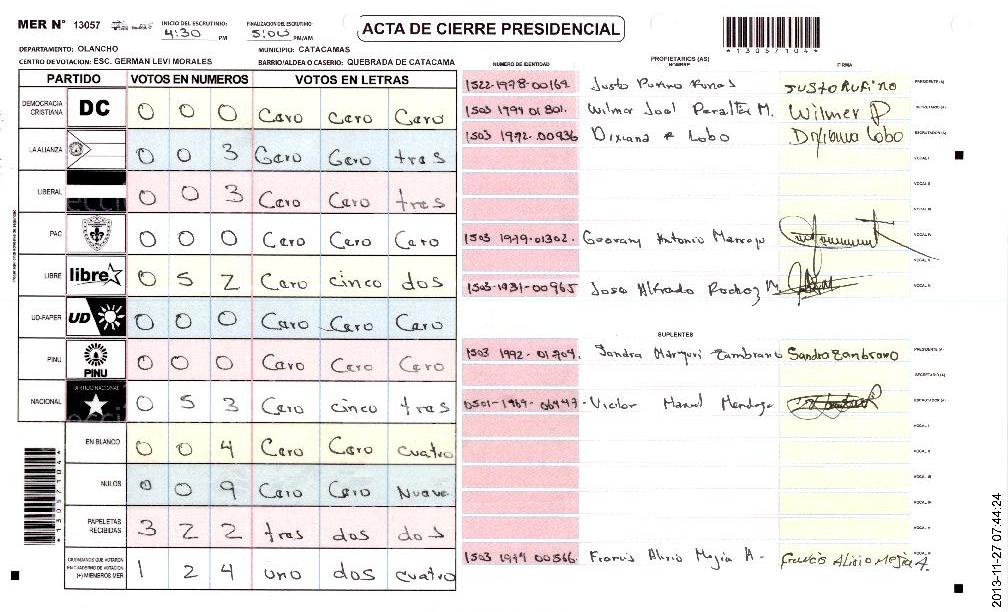 MER Nº 13057 INICIO DEL ESCRUTINIO: 4:30 PM FINALIZACION DEL ESCRUTINIO: 5:00 PM/AM ACTA DE CIERRE PRESIDENCIAL
*13057104*
DEPARTAMENTO: OLANCHO MUNICIPIO: CATACAMAS
CENTRO DE VOTACION: ESC. GERMAN LEVI MORALES BARRIO/ALDEA O CASERIO: QUEBRADA DE CATACAMA
PARTIDO VOTOS EN NUMEROS VOTOS EN LETRAS
DEMOCRACIA CRISTIANA DC 0 0 0 Cero Cero Cero
LA ALIANZA 0 0 3 Cero Cero tres
LIBERAL 0 0 3 Cero Cero tres
PAC 0 0 0 Cero Cero Cero
LIBRE libre 0 5 2 Cero cinco dos
UD-FAPER UD 0 0 0 Cero Cero Cero
PINU PINU 0 0 0 Cero Cero Cero
NACIONAL PARTIDO NACIONAL 0 5 3 Cero cinco tres
EN BLANCO 0 0 4 Cero Cero cuatro
NULOS 0 0 9 Cero Cero Nueve
PAPELETAS RECIBIDAS 3 2 2 tres dos dos
CIUDADANOS QUE VOTARON EN CUADERNO DE VOTACION (+) MIEMBROS MER 1 2 4 uno dos cuatro
*13057104*
PROPIETARIOS (AS)
NUMERO DE IDENTIDAD NOMBRE FIRMA
1522-1978-00169 Justo Rufino JUSTO RUFINO PRESIDENTE (A)
1503 1991 01801. Wilmer Joel Peralta M. Wilmer P SECRETARIO (A)
1503 1972-00936 Dixiana R Lobo Dixiana Lobo ESCRUTADOR (A)
VOCAL I
VOCAL II
VOCAL III
1503 1979-01302. Antonio VOCAL IV
VOCAL V
1503-1931-00965 Jose Alfredo M. VOCAL VI
SUPLENTES
1503 1992-01209. Sandra Zambrano Sandra Zambrano PRESIDENTE (A)
SECRETARIO (A)
0501-1969-06497 Victor Manuel Mendoza ESCRUTADOR (A)
VOCAL I
VOCAL II
VOCAL III
VOCAL IV
VOCAL V
1503 1979 00566. Francis Alirio Mejia A. Francis Alirio Mejia A. VOCAL VI
2013-11-27 07:44:24